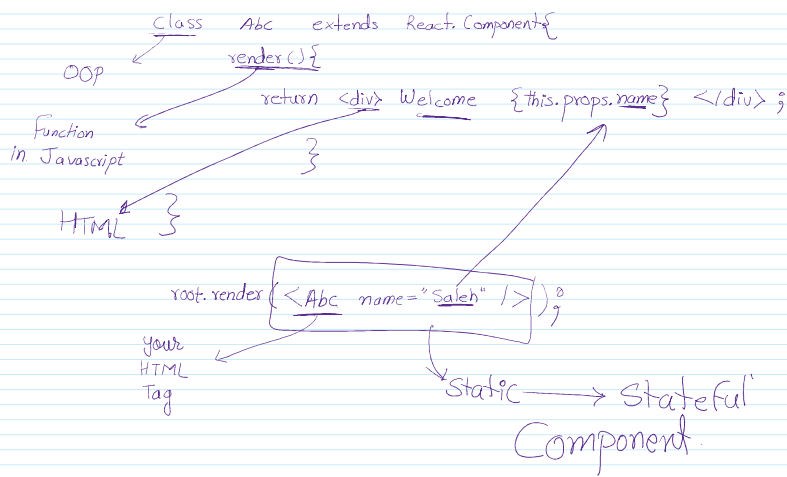 Class Abc extends React.Component{
OOP
render(){
return <div> Welcome {this.props.name} </div>;
Function
in Javascript
}
HTML
}
root.render(<Abc name="Saleh" />);
your
HTML
Tag
Static
Stateful
Component.